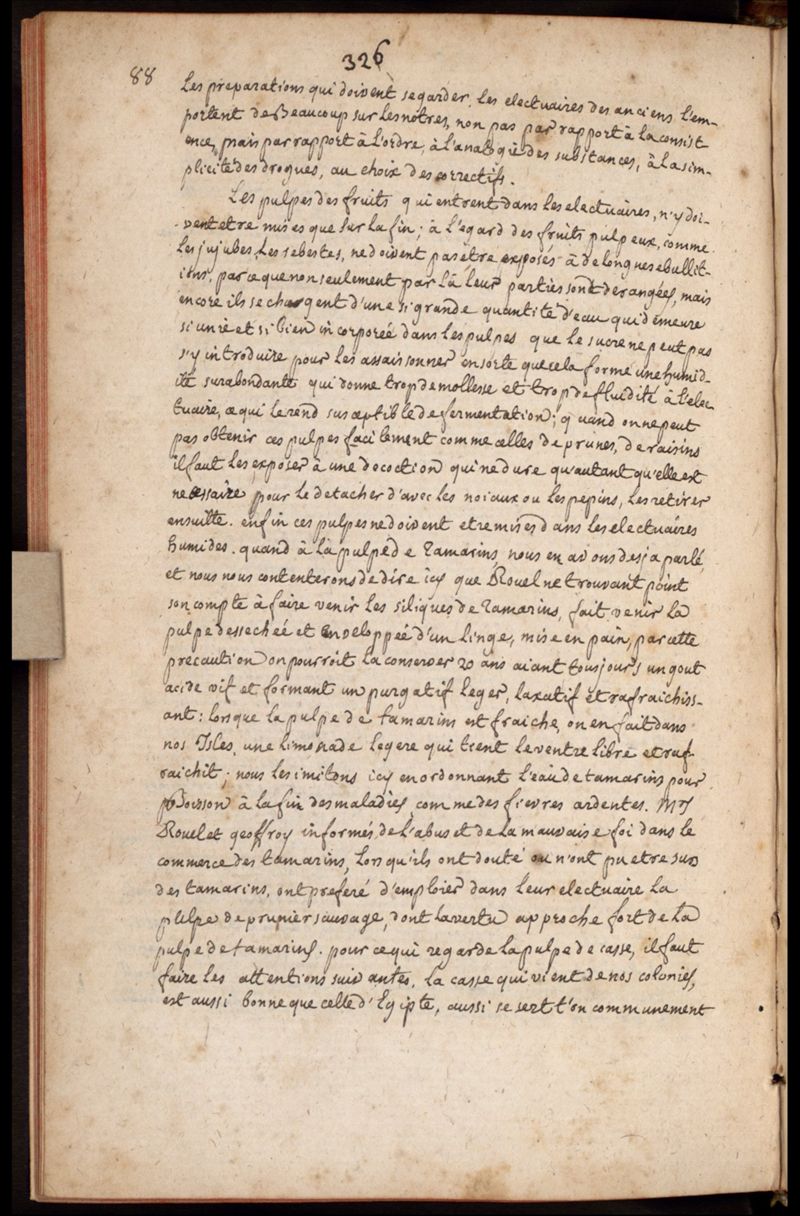 326
88
Les preparations qui doivent se garder. Les electuaires des anciens l'em-
portent de Beaucoup sur les nôtres, non pas par rapport à la consist
ence, mais par rapport à l'ordre, à l'analogie des substances, à la sim-
plicité des drogues, au choix des correctifs.
Les pulpes des fruits qui entrent dans les electuaires, n'y doi-
-vent etre mises que sur la fin; à l'egard des fruits pulpeux, comme
les jujubes, les sebestes, ne doivent pas etre exposés à de longues ebullit-
ions, parceque non seulement par là leur parties sont derangées, mais
encore ils se chargent d'une si grande quantité d'eau qui demeure
si unie et si bien incorporeé dans les pulpes que le sucre ne peut pas
s'y introduire pour les assaisonner en sorte que cela forme une humid-
ité surabondante qui donne trop de mollesse et trop de fluidité à l'elec
tuaire, ce qui le rend susceptible de fermentation; quand on ne peut
pas obtenir ces pulpes facilement comme celles de prunes, de raisins
il faut les exposer à une docoction qui ne dure qu'autant qu'elle est
necessaire pour le detacher d'avec les noiaux ou les pepins, les retirer
ensuitte. enfin ces pulpes ne doivent etre mises dans les electuaires
humides. quand à la pulpe de Tamarins nous en avons desja parlé,
et nous nous contenterons de dire icy que Rouel ne trouvant point
son compte à faire venir les siliques de Tamarins, fait venir la
pulpe dessecheé et enveloppeé d'un linge, mise en pain, par cette
precaution on pourroit la conserver 20 ans aiant tousjours un gout
acide vif et formant un purgatif leger, laxatif et rafraichiss-
ant: lorsque la pulpe de tamarins est fraiche, on en fait dans
nos Isles, une limonade legere qui tient le ventre libre et raf-
raichit; nous les imitons icy en ordonnant l'eau de tamarins pour
Boisson à la fin des maladies, comme des fievres ardentes. Mrs
Rouel et geoffroy informés de l'abus et de la mauvaise foi dans le
commerce des tamarins, lorsqu'ils ont douté ou n'ont pu etre surs
des tamarins, ont preferé d'emploier dans leur electuaire la
pulpe de prunier sauvage, dont la vertu approche fort de la
pulpe de tamarins. pour ce qui regarde la pulpe de casse, il faut
faire les attentions suivantes, la casse qui vient de nos colonies,
est aussi bonne que celle d'Egipte, aussi se sert t'on communement